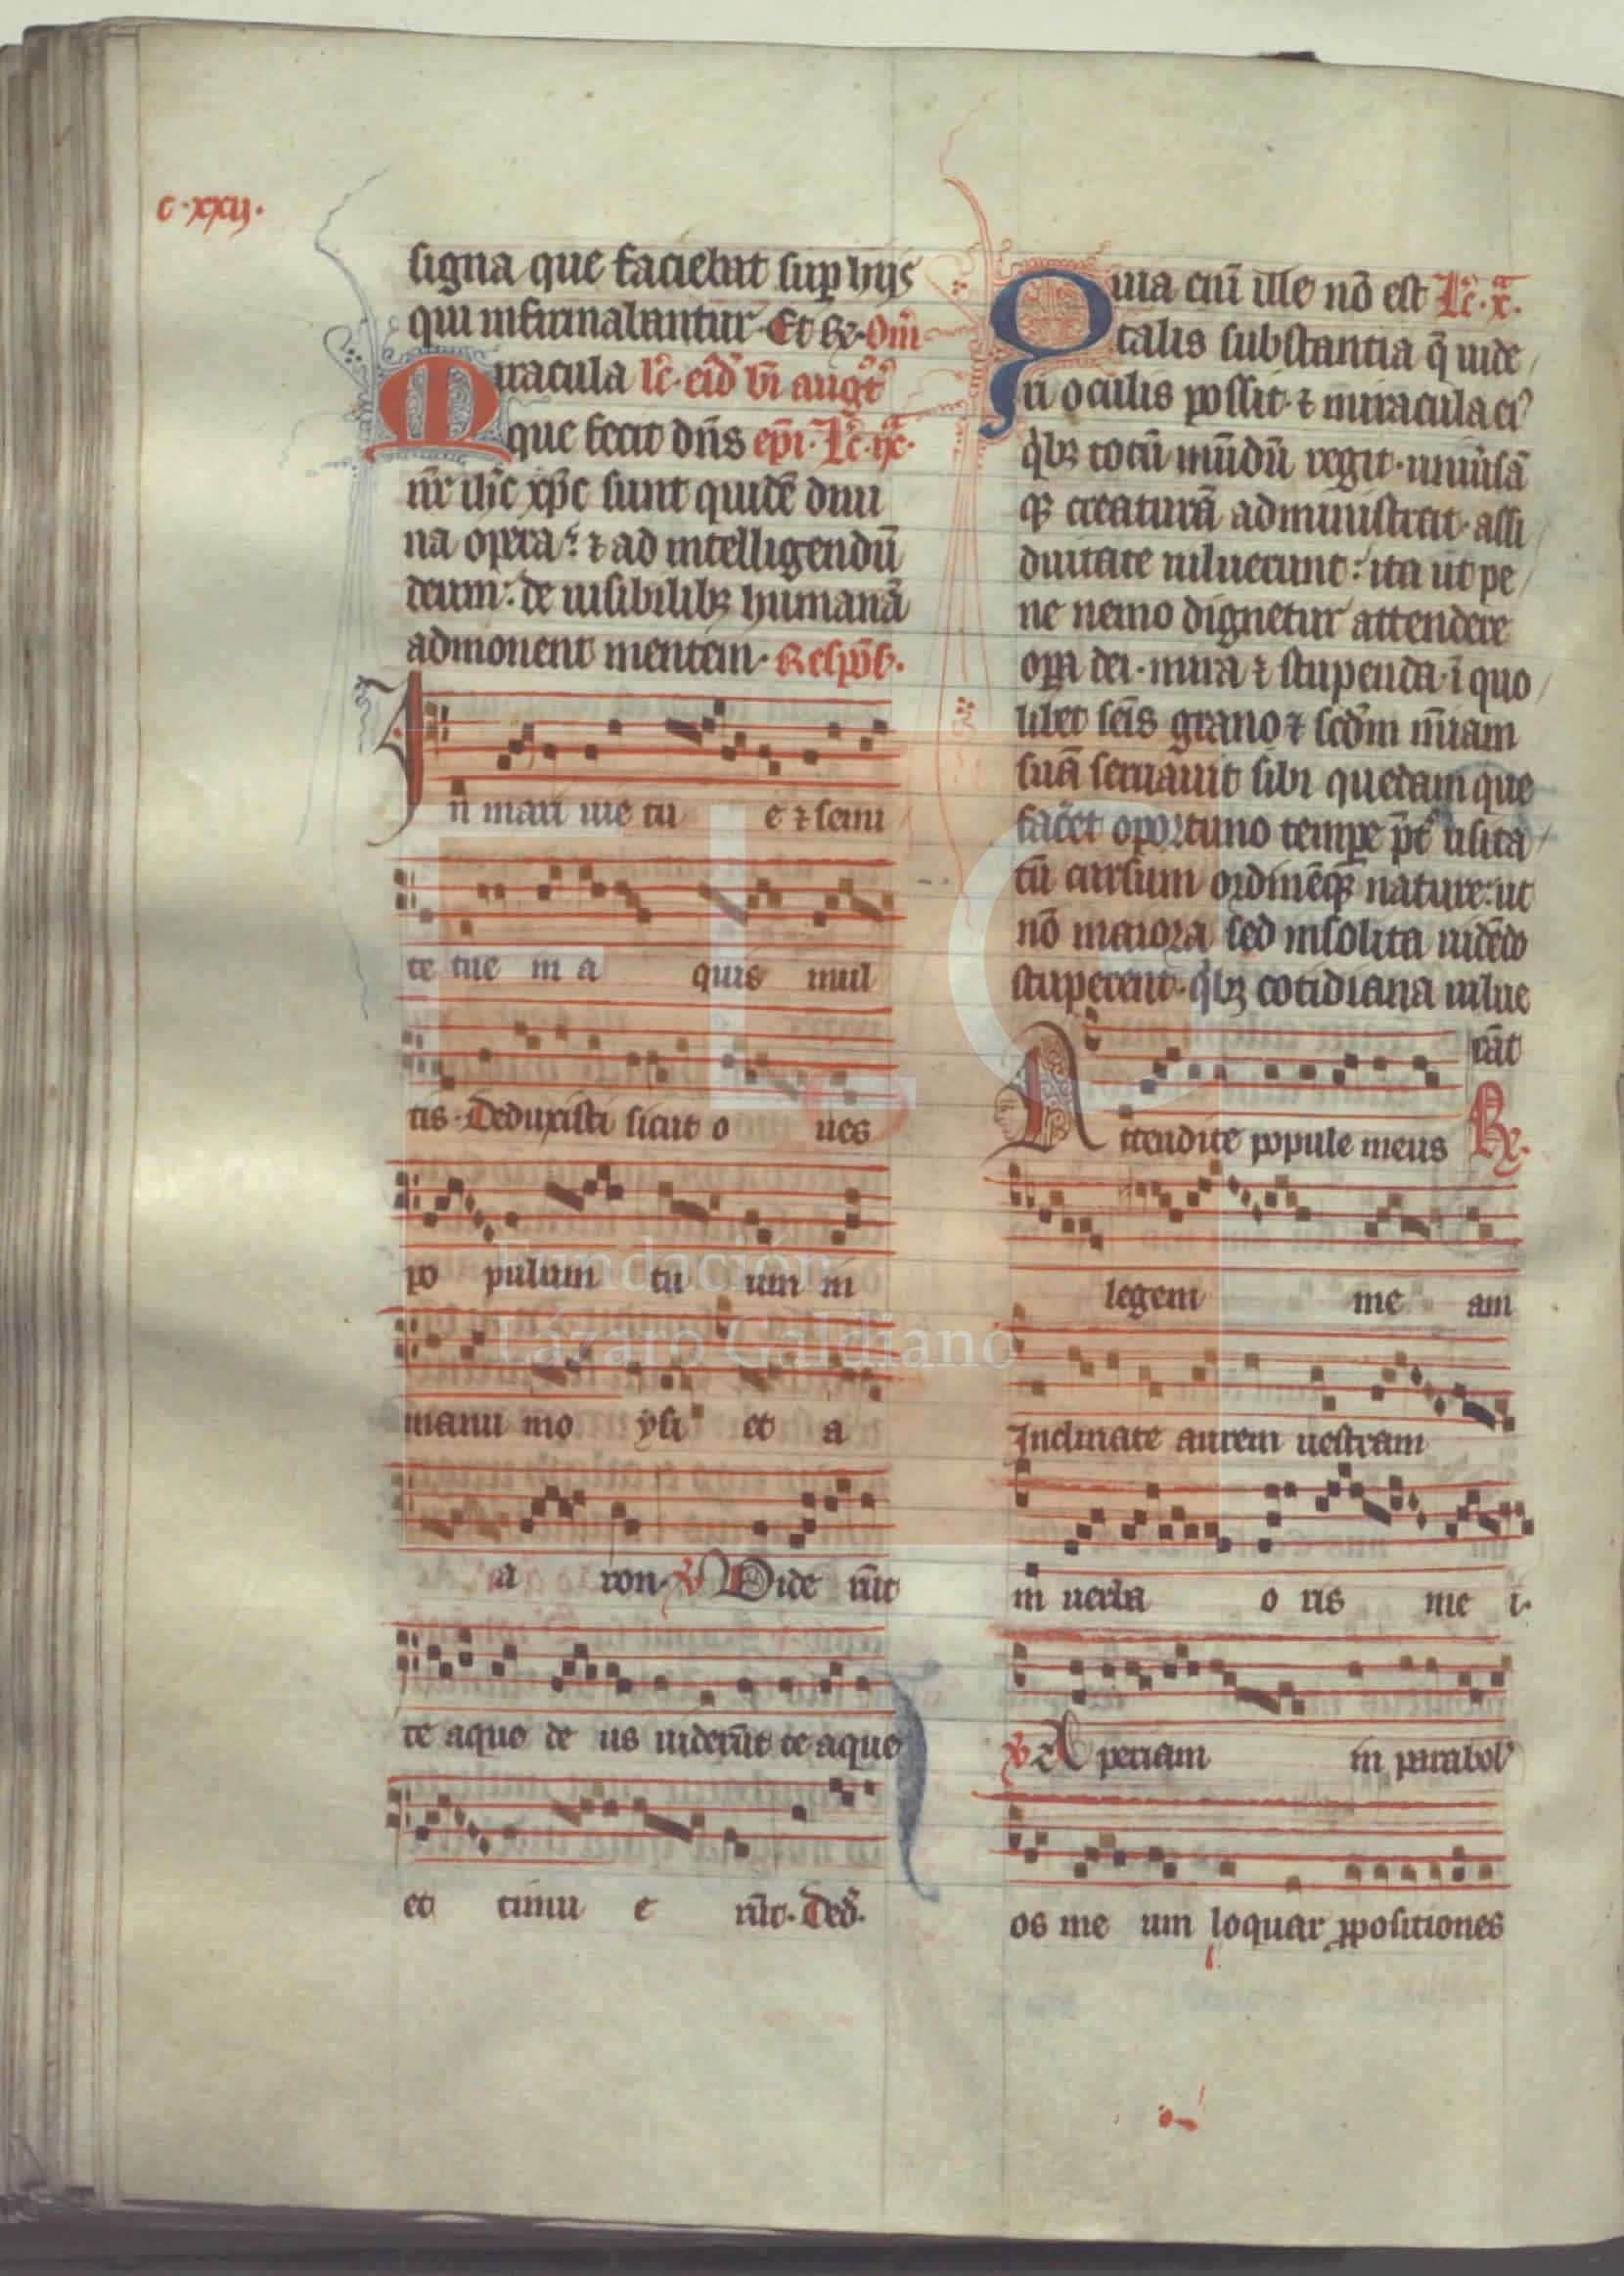 c·xxij.
signa que faciebat sup hijs
qui infirmabantur. Et R̃. Om̃
Miracula lc̃. eiд̃ bi augt̃
que fecit dñs epi. Lc̃. ixª.
nr̃ ihc̃ xp̃c sunt quidẽ diui
na opera: ⁊ ad intelligendũ
deum: de uisibilibꝫ humanã
admonent mentem. Respõs.
In mari uie tu e ⁊ semi
te tue in a quis mul
tis. Deduxisti sicut o ues
po pulum tu um in
manu mo ysi et a
a ron. V̓ Vide rũt
te aque de us uiderũt te aque
et timu e rũt. Ded̃.
Quia eni ille nõ est Lc̃. xª.
talis substantia q̃ uide
ri oculis possit. ⁊ miracula eiꝰ
q̓bꝫ totũ mũdũ regit. uniũsã
qꝫ creaturã administrat. assi
duitate uiluerunt: ita ut pe
ne nemo dignetur attendere
oꝑa dei. mira ⁊ stupenda. ĩ quo
libet seĩs grano ⁊ scd̃m mĩam
suã seruauit sibi quedam que
facet oportuno tempe p̃t usita
tũ cursum ordinẽqꝫ nature: ut
nõ maiora sed insolita uidẽdo
stuperent. q̓bꝫ cotidiana uilue
rãt
Attendite popule meus R̃.
legem me am
Inclinate aurem uestram
in uerba o ris me i.
V̓ Aperiam in parabolꝰ
os me um loquar ꝓpositiones
Fundación
Lázaro Galdiano